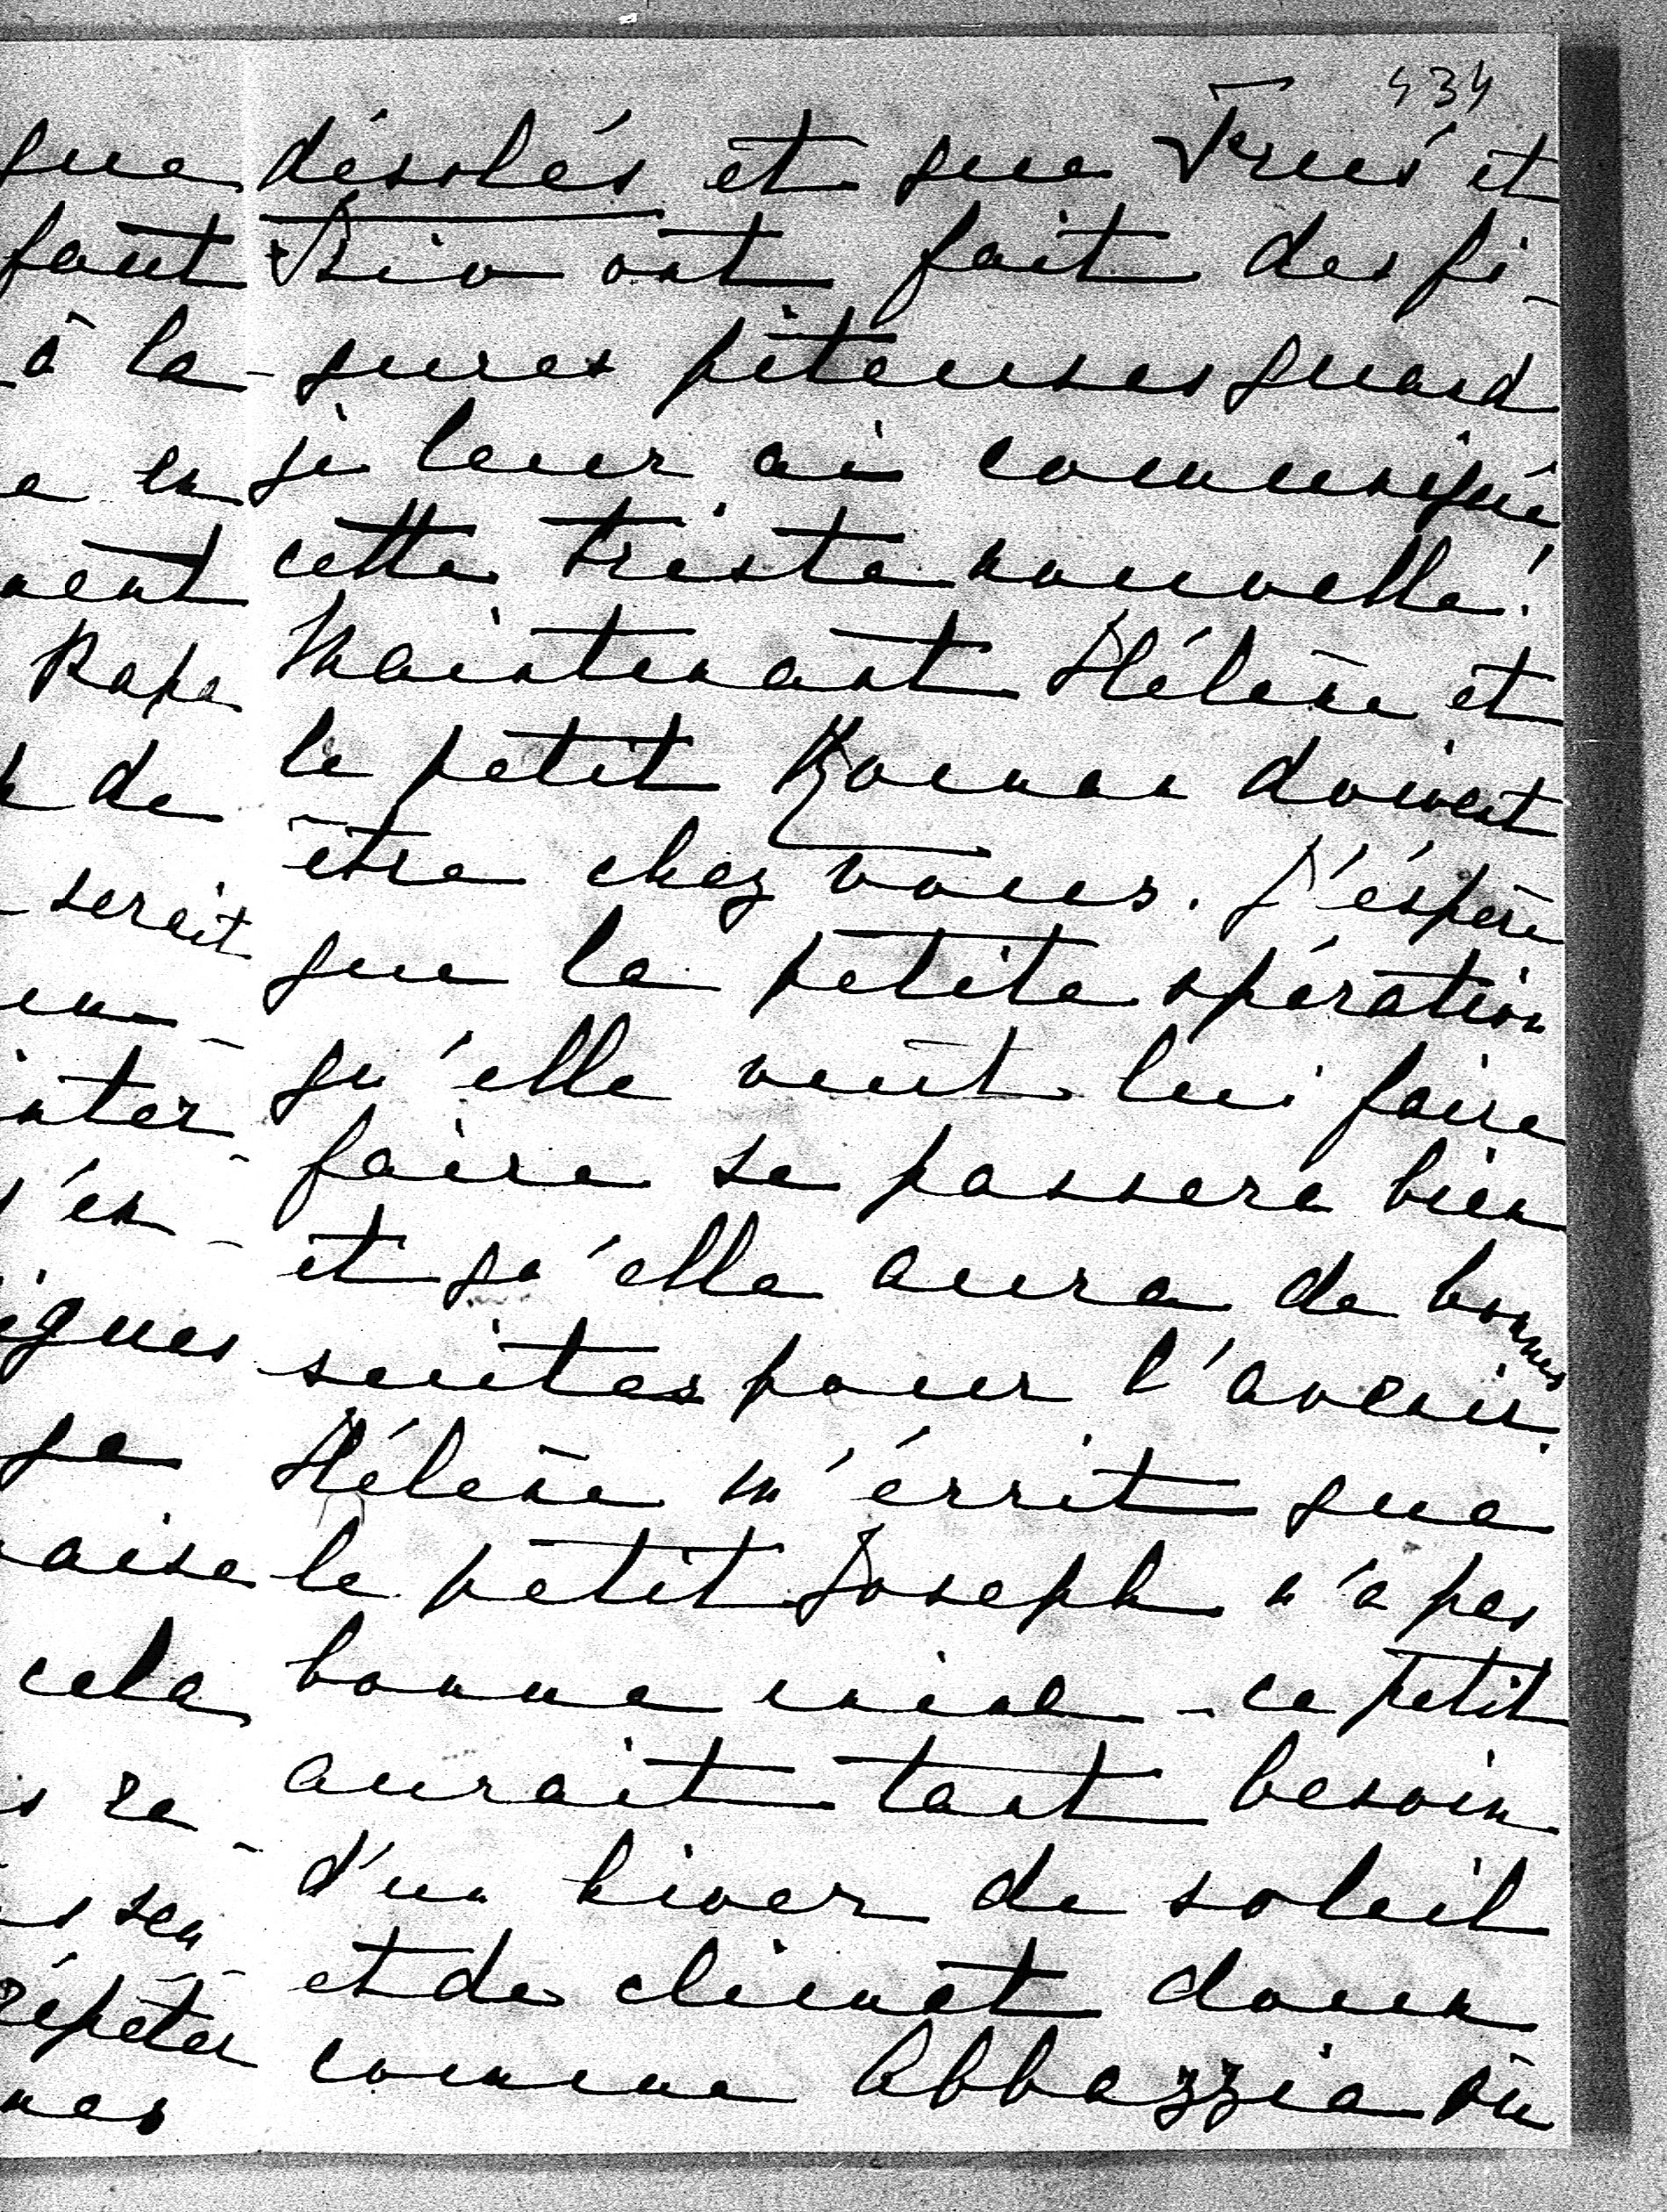 434
désolés et que Frues et
Bio ont fait des fi-
gures piteuses quand
je leur ai communiqué
cette triste nouvelle!
Maintenant Hélène et
le petit doivent
être chez vous. J'éspère
que la petite opération
qu'elle veut lui faire
faire se passera bien
et qu'elle aura de bonnes
suites pour l'avenir.
Hélène m'érrit que
le petit Joseph n'a pas
bonne mine - ce petit
aurait tant besoin
d'un hiver de soleil
et de climat doux
comme Abbazzia où
que
faut
à la
en
ment
Papa
de
serait
en-
inter-
s'en-
igues
ga
aise
cela
re-
sen-
répéter
mes